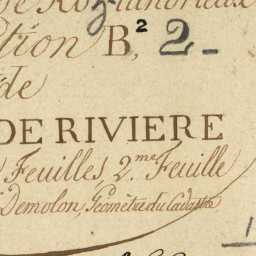 B² 2
de
DE RIVIERE
Feuilles, 2.me Feuille
Demolon, Géomètre du Cadastre
1